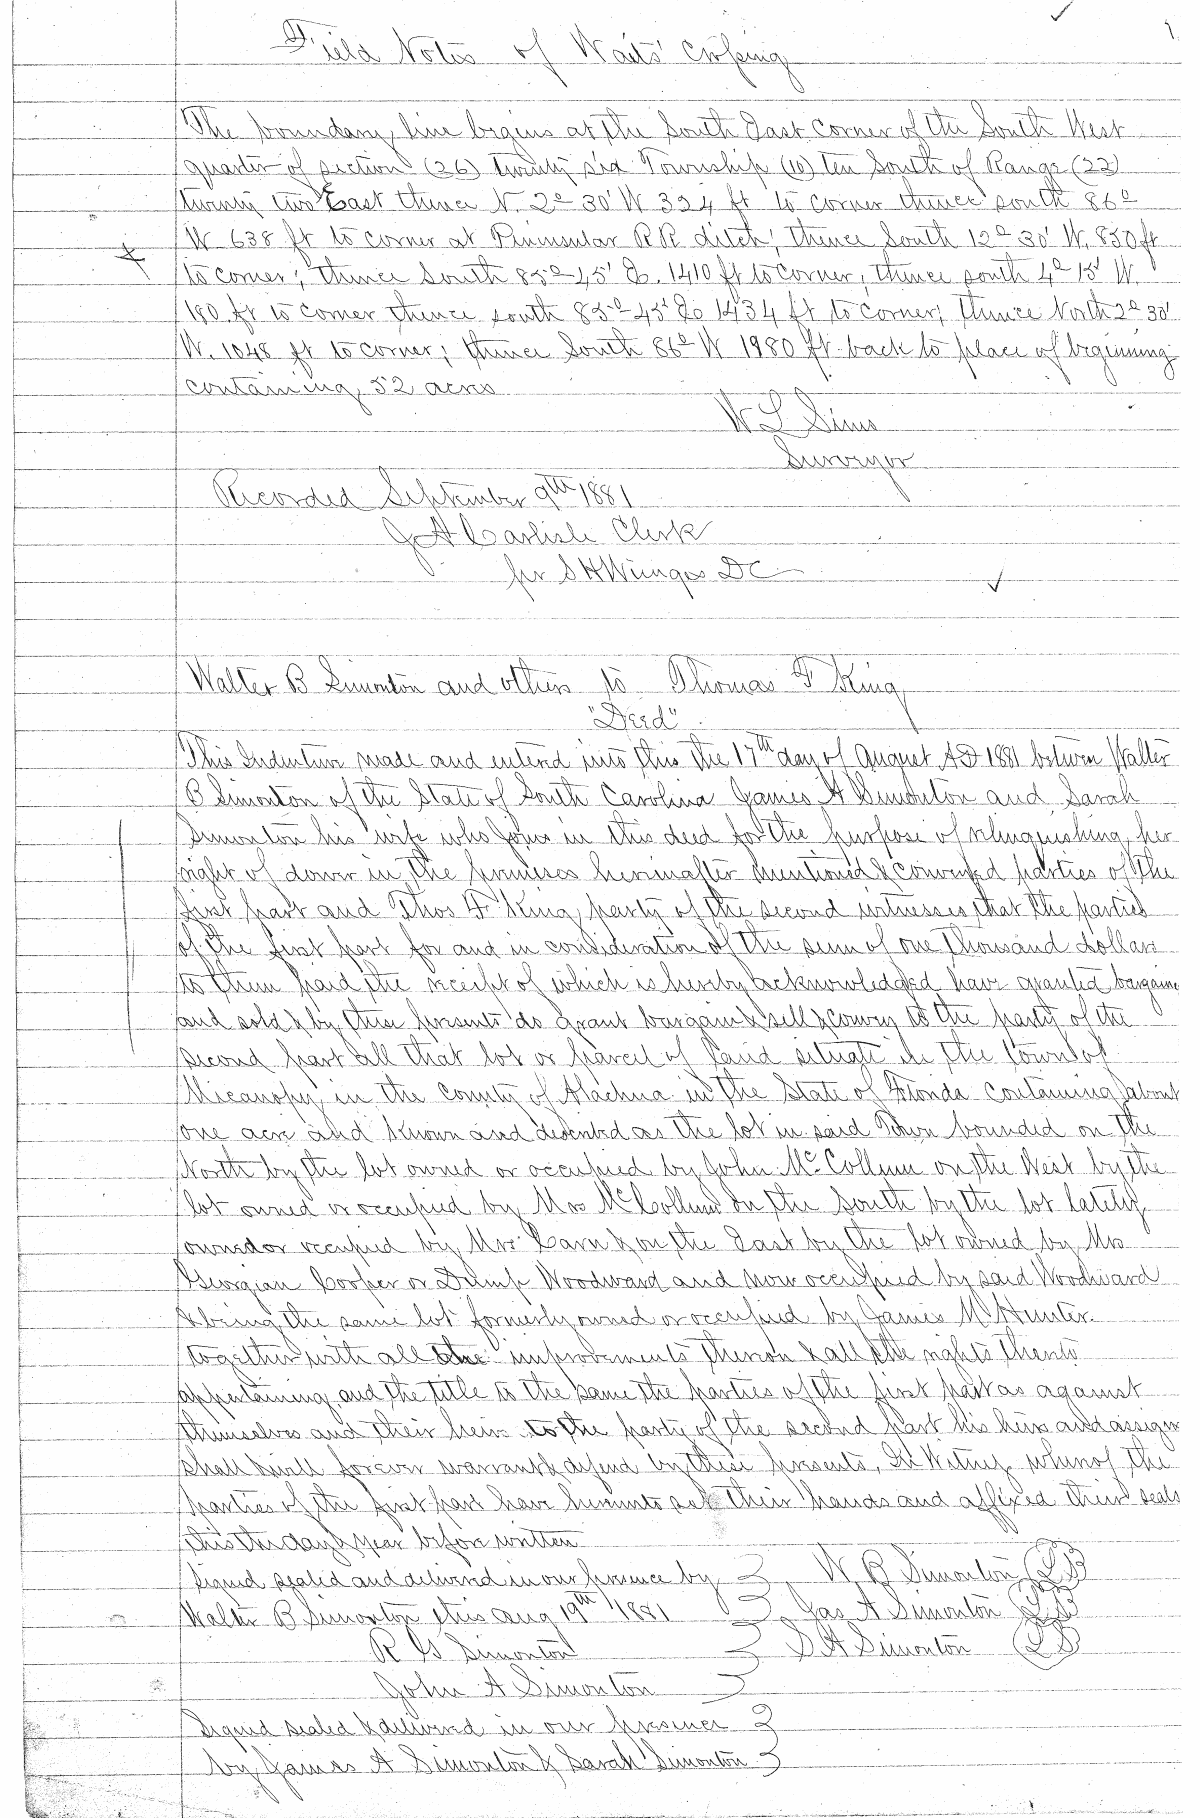 1
Field Notes of Waits' Crossing
The boundary line begins at the South East corner of the South West
quarter of section (26) twenty six Township (10) ten South of Range (22)
twenty two East thence N. 2° 30' W 324 ft to corner thence south 86°
W 638 ft to corner at Peninsular RR ditch; thence South 12° 30' W. 850 ft
to corner; thence South 85° 45' E. 1410 ft to corner; thence south 4° 15' W.
190 ft to corner thence south 85° 45' E 1434 ft to corner; thence North 2° 30'
W. 1048 ft to corner; thence South 86° W 1980 ft back to place of beginning
containing 52 acres
W L Sims
Surveyor
Recorded September 9th 1881
J A Carlisle Clerk
per S H Wienges DC
Walter B Simonton and others to Thomas F King
"Deed"
This Indenture made and entered into this the 17th day of August AD 1881 between Walter
B Simonton of the State of South Carolina James A Simonton and Sarah
Simonton his wife who joins in this deed for the purpose of relinquishing her
right of dower in the premises hereinafter mentioned & conveyed parties of the
first part and Thos F King party of the second witnesses that the parties
of the first part for and in consideration of the sum of one thousand dollars
to them paid the receipt of which is hereby acknowledged have granted bargained
and sold & by these presents do grant bargain & sell & convey to the party of the
second part all that lot or parcel of land situate in the town of
Micanopy in the county of Alachua in the State of Florida containing about
one acre and known and described as the lot in said Town bounded on the
North by the lot owned or occupied by John McCollum on the West by the
lot owned or occupied by Mrs McCollum on the South by the lot lately
owned or occupied by Mrs Carn & on the East by the lot owned by Mrs
Georgian Cooper or Dump Woodward and now occupied by said Woodward
& being the same lot formerly owned or occupied by James M Hunter
together with all the improvements thereon & all the rights thereto
appertaining and the title to the same the parties of the first part as against
themselves and their heirs to the party of the second part his heirs and assigns
shall & will forever warrant & defend by these presents, In Witness whereof the
parties of the first part have hereunto set their hands and affixed their seals
this the day & year before written
Signed sealed and delivered in our presence by } W B Simonton LS
Walter B Simonton this aug 19th 1881 } Jas A Simonton LS
R G Simonton } S A Simonton LS
John A Simonton }
Signed sealed & delivered in our presence }
by James A Simonton & Sarah Simonton }